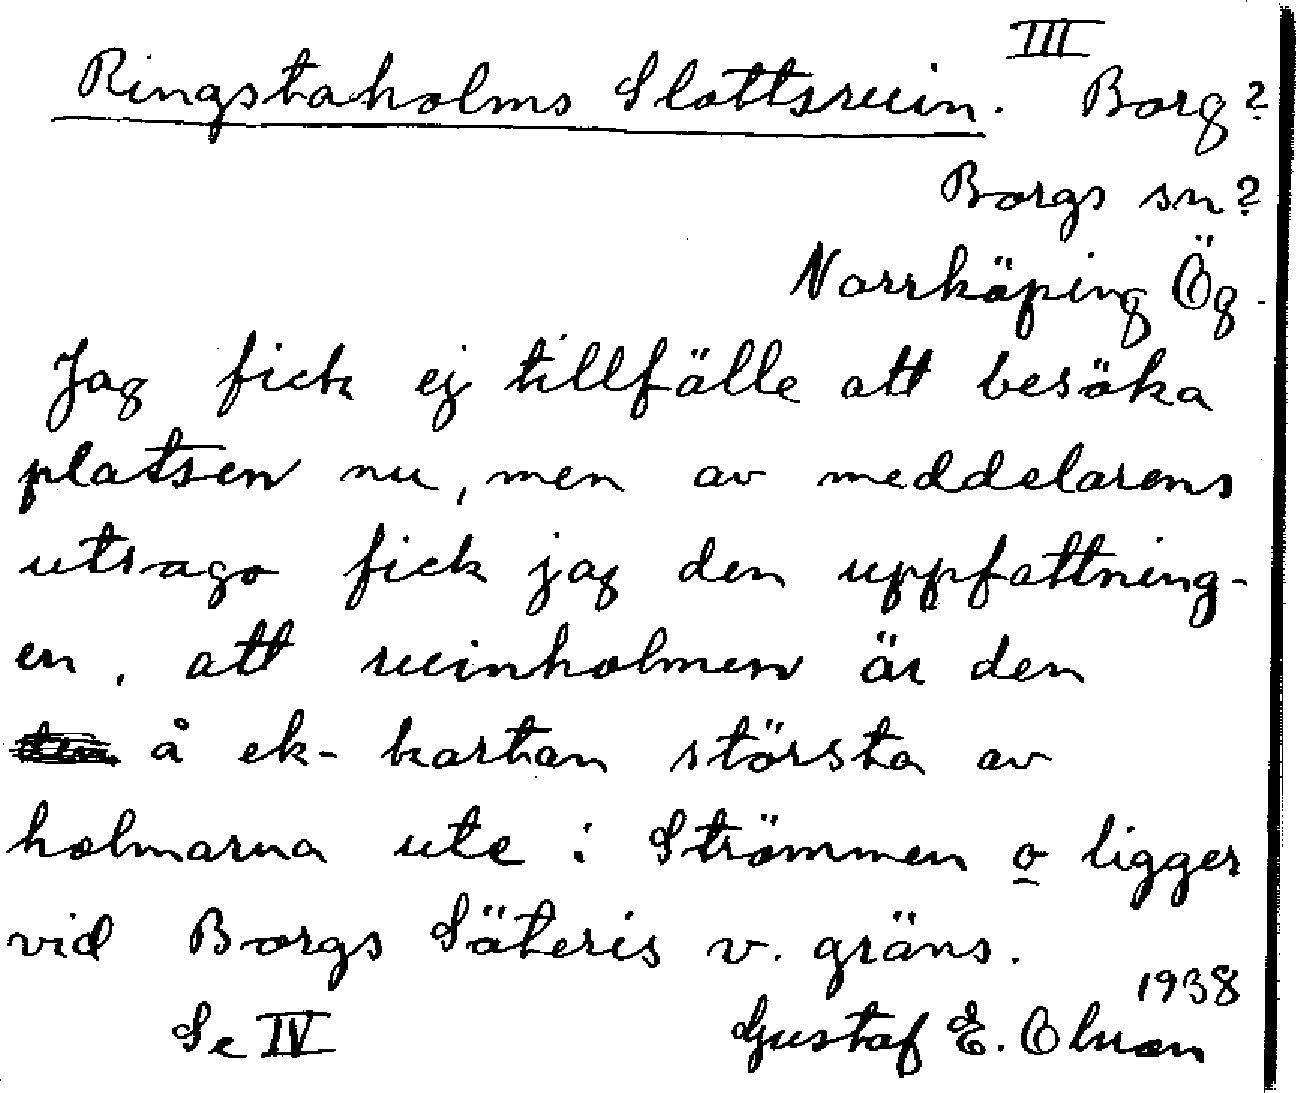 III
Ringstaholms Slottsruin. Borg?
Borgs sn?
Norrköping Ög.
Jag fick ej tillfälle att besöka
platsen nu, men av meddelarens
utsago fick jag den uppfattning-
en, att ruinholmen är den
å ek-kartan största av
holmarna ute i Strömmen o ligger
vid Borgs Säteris v. gräns.
1938
Se IV Gustaf E. Olsson